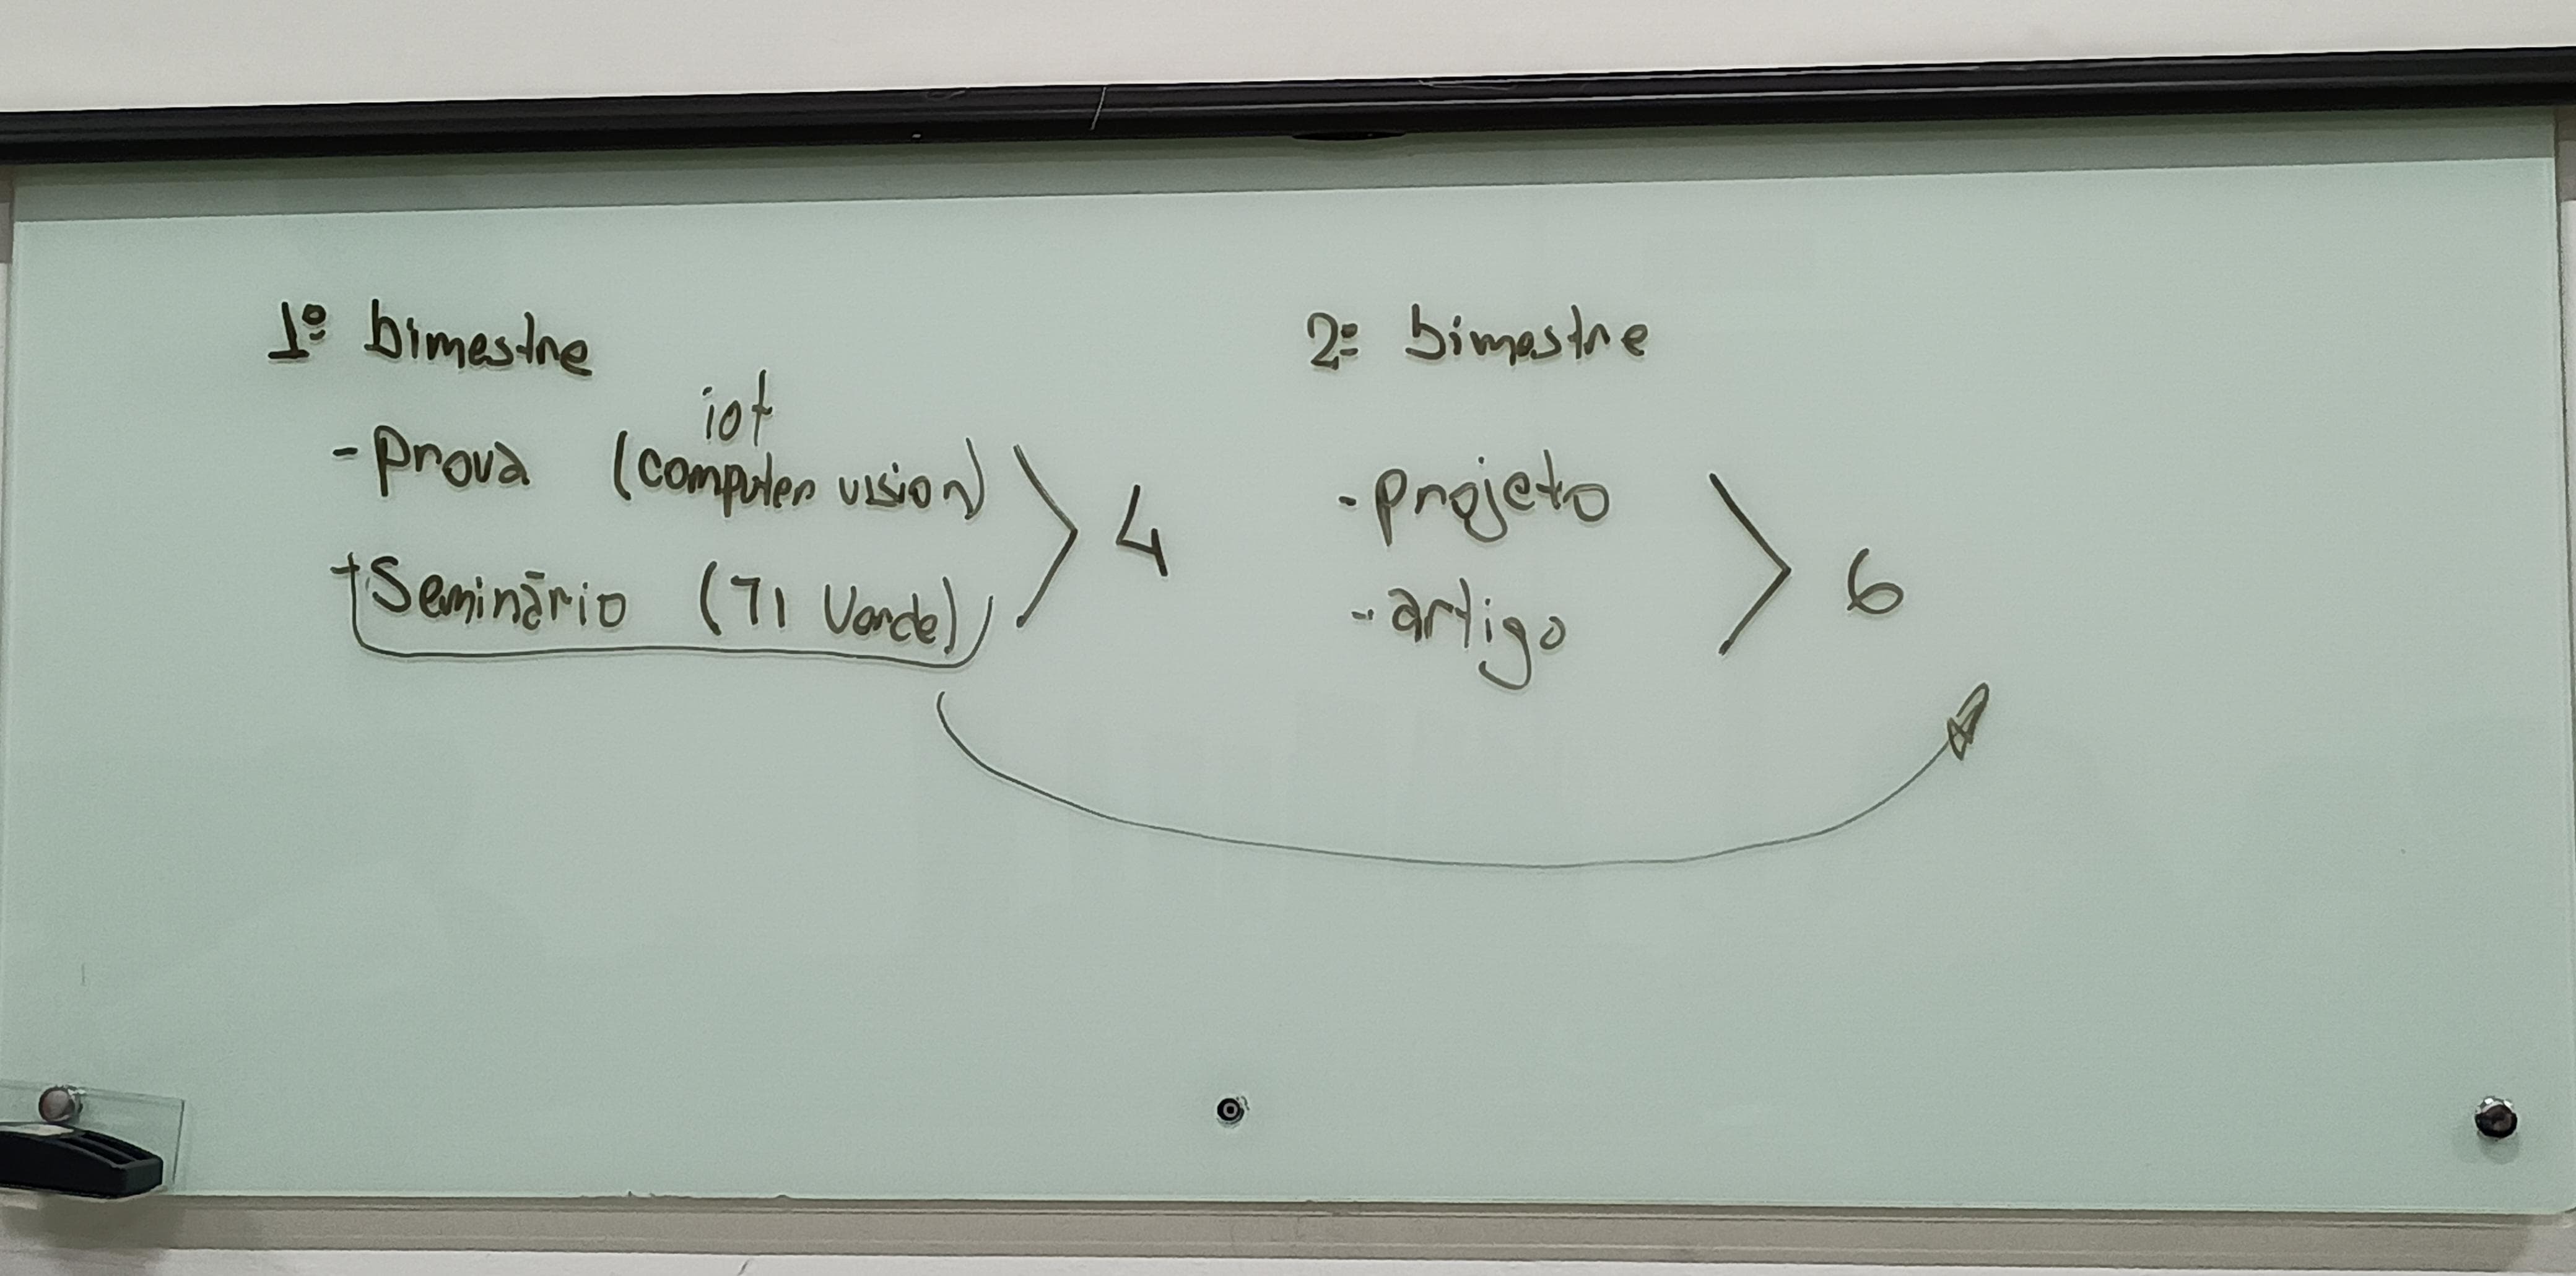 1º bimestre
iot
- prova (computer vision)
4
+ Seminário (TI Verde)
2º bimestre
- projeto
6
- artigo